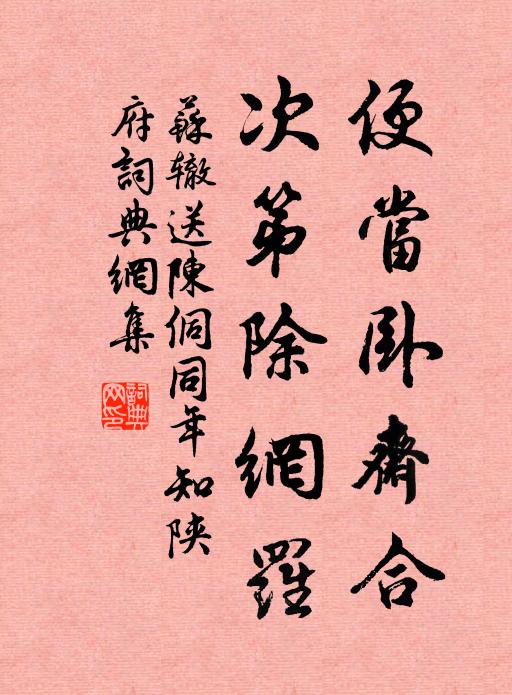 便當卧齋合
次第除網羅
蘇辙送陳侗同年知陕
府詞典網集
詞典网印